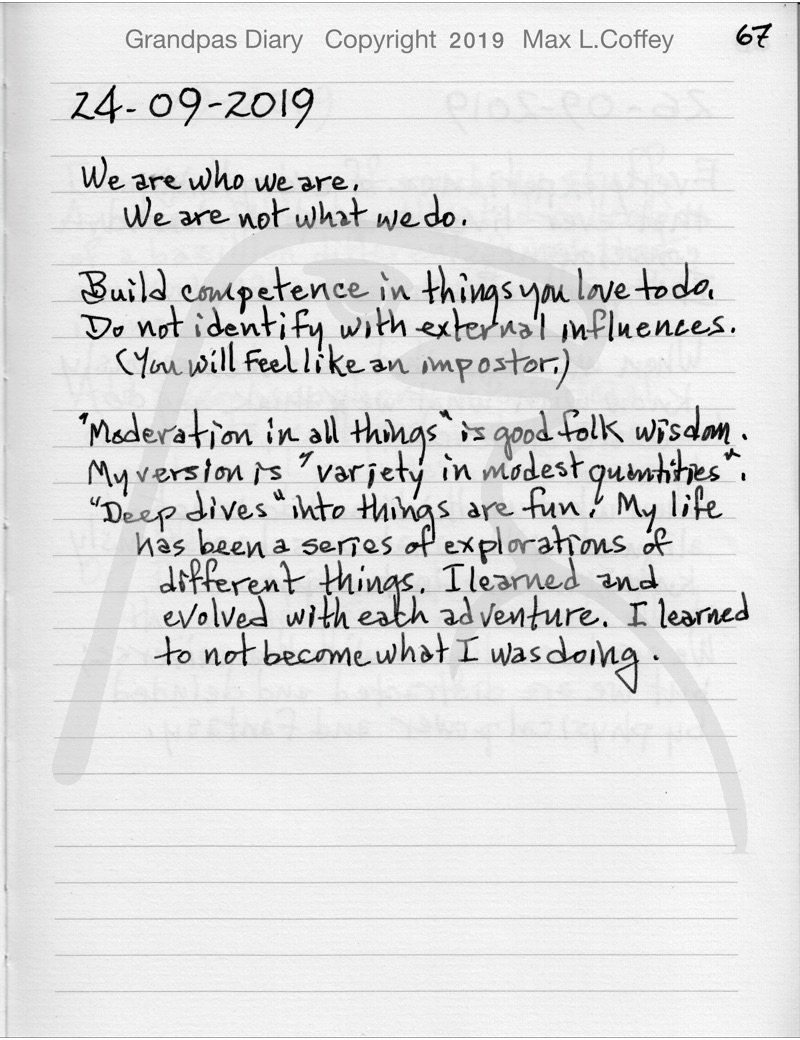 Grandpas Diary Copyright 2019 Max L.Coffey
67
24-09-2019
We are who we are.
We are not what we do.
Build competence in things you love to do.
Do not identify with external influences.
(You will feel like an impostor.)
"Moderation in all things" is good folk wisdom.
My version is "variety in modest quantities".
"Deep dives" into things are fun! My life
has been a series of explorations of
different things. I learned and
evolved with each adventure. I learned
to not become what I was doing.